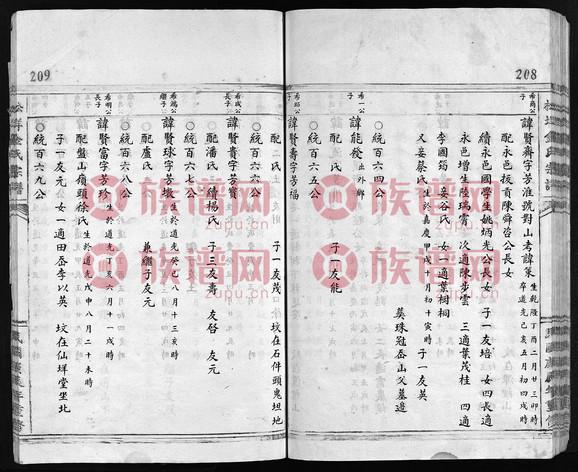 208
希商公子
諱賢齊字芳淮號對山考諱策
生乾隆丁酉二月廿三卯時
卒道光己亥五月初四戌時
配永邑拔貢陳舜咨公長女
續永邑國學生姚炳光公長女 子一友培 女四長適
永邑增生陸瑞霄 次適陳步雲 三適葉茂桂 四適
李國筠 妾谷氏 女一適葉桐桐
又妾蔡氏 生於嘉慶甲戌十月初十寅時 子一友英
葬珠冠岙山父墓邊
○統百六四公
希一公子
諱能發 出外鄉
配 氏 子一友能
○統百六五公
希郅公子
諱賢壽字芳福
209
配 氏 子一友茂 坟在石件頭鬼坦地
○統百六六公
希成公長子
諱賢貴字芳寶
配潘氏 續楊氏 子三友壽 友發 友元
○統百六七公
希鴻公繼子
諱賢球字芳墩 生於道光癸巳八月十三亥時
配盧氏 兼繼子友元
○統百六八公
希明公長子
諱賢富字芳珍 生於道光丁亥六月十一戌時
配盤山嶺頭徐氏 生於道光戊申八月二十未時
子一友元 女一適田岙李以英 坟在仙垟堂坐北
○統百六九公
族谱网
zupu.cn
族谱网
zupu.cn
族谱网
zupu.cn
族谱网
zupu.cn